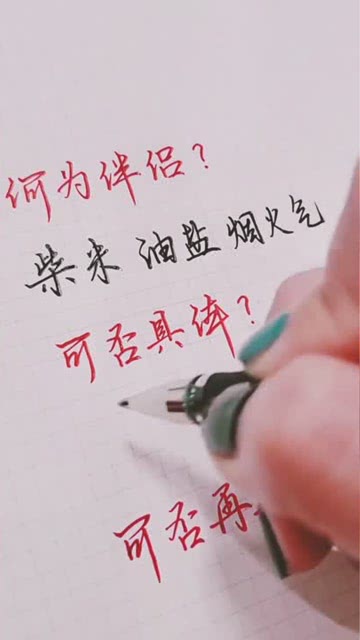 何为伴侣？
柴米油盐烟火气
可否具体？
可否再